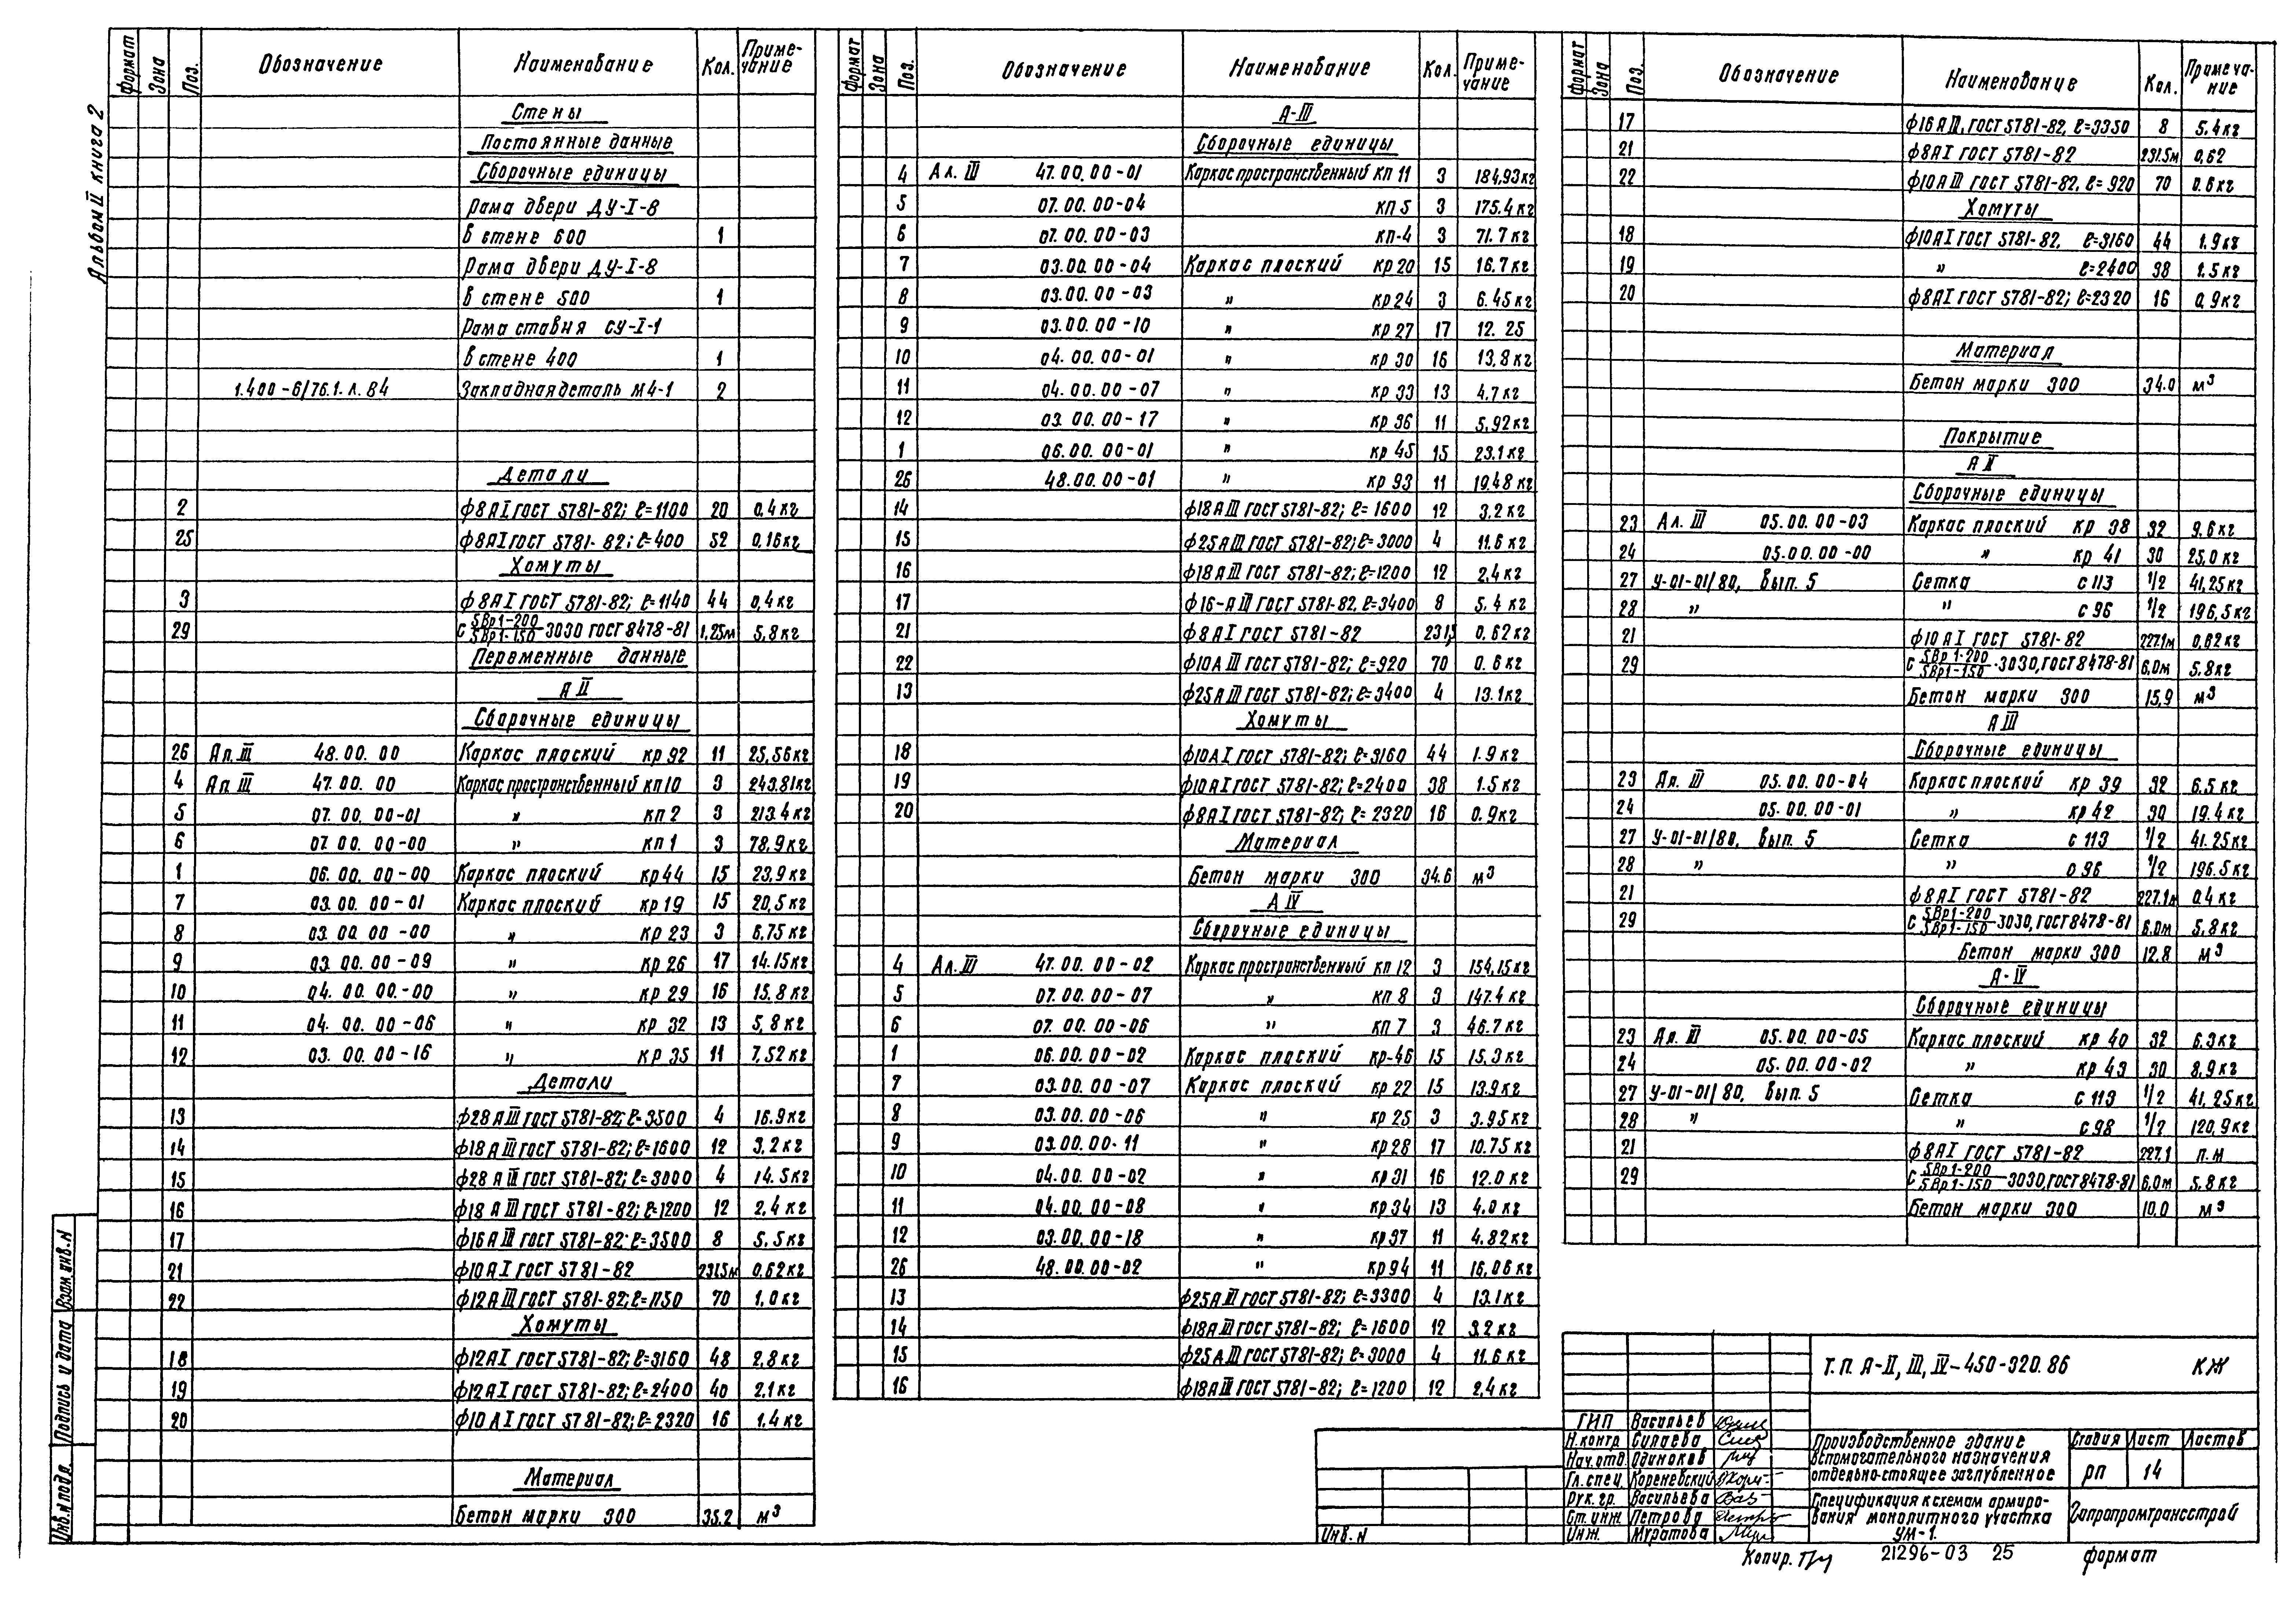 Альбом II книга 2
Формат Зона Поз. Обозначение Наименование Кол. Приме-чание
Стены
Постоянные данные
Сборочные единицы
Рама двери ДУ-I-8
в стене 600 1
Рама двери ДУ-I-8
в стене 500 1
Рама ставня СУ-I-1
в стене 400 1
1.400-6/76.1.л.84 Закладная деталь М4-1 2
Детали
2 ф8АI ГОСТ 5781-82; ℓ=1100 20 0,4кг
25 ф8АI ГОСТ 5781-82; ℓ=400 52 0,16кг
Хомуты
3 ф8АI ГОСТ 5781-82; ℓ=1140 44 0,4кг
29 С 5Вр1-200/5Вр1-150-3030 ГОСТ 8478-81 1,25м 5,8кг
Переменные данные
А II
Сборочные единицы
26 Ал. III 48.00.00 Каркас плоский кр 92 11 25,56кг
4 Ал III 47.00.00 Каркас пространственный кп10 3 243.81кг
5 07.00.00-01 " кп2 3 213.4кг
6 07.00.00-00 " кп1 3 78.9кг
1 06.00.00-00 Каркас плоский кр44 15 23,9кг
7 03.00.00-01 Каркас плоский кр19 15 20,5кг
8 03.00.00-00 " кр 23 3 6,75кг
9 03.00.00-09 " кр 26 17 14.15кг
10 04.00.00.-00 " кр 29 16 15.8кг
11 04.00.00-06 " кр 32 13 5,8кг
12 03.00.00-16 " кр 35 11 7,52кг
Детали
13 ф28 А III ГОСТ 5781-82; ℓ=3500 4 16.9кг
14 ф18 А III ГОСТ 5781-82; ℓ=1600 12 3,2кг
15 ф28 А III ГОСТ 5781-82; ℓ=3000 4 14.5кг
16 ф18 А III ГОСТ 5781-82; ℓ=1200 12 2,4кг
17 ф16 А III ГОСТ 5781-82; ℓ=3500 8 5,5кг
21 ф10 А I ГОСТ 5781-82 231.5м 0,62кг
22 ф12 А III ГОСТ 5781-82; ℓ=1150 70 1,0кг
Хомуты
18 ф12АI ГОСТ 5781-82; ℓ=3160 48 2,8кг
19 ф12АI ГОСТ 5781-82; ℓ=2400 40 2,1кг
20 ф10 АI ГОСТ 5781-82; ℓ=2320 16 1.4кг
Материал
Бетон марки 300 35.2 м³
Формат Зона Поз. Обозначение Наименование Кол. Приме-чание
А-III
Сборочные единицы
4 Ал. III 47.00.00-01 Каркас пространственный кп 11 3 184,93кг
5 07.00.00-04 кп 5 3 175.4кг
6 07.00.00-03 кп-4 3 71.7кг
7 03.00.00-04 Каркас плоский кр 20 15 16.7кг
8 03.00.00-03 " кр 24 3 6.45кг
9 03.00.00-10 " кр 27 17 12.25
10 04.00.00-01 " кр 30 16 13,8кг
11 04.00.00-07 " кр 33 13 4.7кг
12 03.00.00-17 " кр 36 11 5,92кг
1 06.00.00-01 " кр 45 15 23.1кг
26 48.00.00-01 " кр 93 11 19.48кг
14 ф18 А III ГОСТ 5781-82; ℓ=1600 12 3.2кг
15 ф25 А III ГОСТ 5781-82; ℓ=3000 4 11.6кг
16 ф18 А III ГОСТ 5781-82; ℓ=1200 12 2,4кг
17 ф16-А III ГОСТ 5781-82, ℓ=3400 8 5.4кг
21 ф8 АI ГОСТ 5781-82 231,5 0,62кг
22 ф10А III ГОСТ 5781-82; ℓ=920 70 0.6кг
13 ф25 А III ГОСТ 5781-82; ℓ=3400 4 13.1кг
Хомуты
18 ф10АI ГОСТ 5781-82; ℓ=3160 44 1.9кг
19 ф10АI ГОСТ 5781-82; ℓ=2400 38 1.5кг
20 ф8АI ГОСТ 5781-82; ℓ=2320 16 0.9кг
Материал
Бетон марки 300 34.6 м³
А IV
Сборочные единицы
4 Ал. III 47.00.00-02 Каркас пространственный кп 12 3 154,15кг
5 07.00.00-07 " кп 8 3 147.4кг
6 07.00.00-06 " кп 7 3 46.7кг
1 06.00.00-02 Каркас плоский кр-46 15 15.3кг
7 03.00.00-07 Каркас плоский кр 22 15 13.9кг
8 03.00.00-06 " кр 25 3 3.95кг
9 03.00.00-11 " кр28 17 10.75кг
10 04.00.00-02 " кр31 16 12.0кг
11 04.00.00-08 " кр34 13 4.0кг
12 03.00.00-18 " кр37 11 4.82кг
26 48.00.00-02 " кр94 11 16,06кг
13 ф25А III ГОСТ 5781-82; ℓ=3300 4 13.1кг
14 ф18А III ГОСТ 5781-82; ℓ=1600 12 3.2кг
15 ф25 А III ГОСТ 5781-82; ℓ=3000 4 11.6кг
16 ф18А III ГОСТ 5781-82; ℓ=1200 12 2,4кг
Формат Зона Поз. Обозначение Наименование Кол. Примеча-ние
17 ф16 А III, ГОСТ 5781-82, ℓ=3350 8 5.4кг
21 ф8АI ГОСТ 5781-82 231.5м 0,62
22 ф10 А III ГОСТ 5781-82, ℓ=920 70 0.6кг
Хомуты
18 ф10АI ГОСТ 5781-82, ℓ=3160 44 1.9кг
19 " ℓ=2400 38 1.5кг
20 ф8АI ГОСТ 5781-82; ℓ=2320 16 0,9кг
Материал
Бетон марки 300 34.0 м³
Покрытие
А II
Сборочные единицы
23 Ал. III 05.00.00-03 Каркас плоский кр 38 32 9.6кг
24 05.00.00-00 " кр 41 30 25,0кг
27 У-01-01/80, Вып. 5 Сетка с 113 1/2 41,25кг
28 " " с 96 1/2 196,5кг
21 ф10 АI ГОСТ 5781-82 227.1м 0,62кг
29 С 5Вр1-200/5Вр1-150-3030, ГОСТ 8478-81 6.0м 5.8кг
Бетон марки 300 15,9 м³
А III
Сборочные единицы
23 Ал. III 05.00.00-04 Каркас плоский кр 39 32 6.5кг
24 05.00.00-01 " кр 42 30 19.4кг
27 У-01-01/80, Вып. 5 Сетка с 113 1/2 41.25кг
28 " " с 96 1/2 196.5кг
21 ф8АI ГОСТ 5781-82 227.1м 0.4кг
29 С 5Вр1-200/5Вр1-150-3030, ГОСТ 8478-81 6.0м 5,8кг
Бетон марки 300 12.8 м³
А-IV
Сборочные единицы
23 Ал. III 05.00.00-05 Каркас плоский кр 40 32 6.3кг
24 05.00.00-02 " кр 43 30 8.9кг
27 У-01-01/80, Вып. 5 Сетка с 113 1/2 41,25кг
28 " " с 98 1/2 120.9кг
21 ф8АI ГОСТ 5781-82 227.1 п.м
29 С 5Вр1-200/5Вр1-150-3030, ГОСТ 8478-81 6.0м 5.8кг
Бетон марки 300 10.0 м³
Взам. инв. N
Подпись и дата
Инв. N подл.
Т.П. А-II, III, IV-450-320.86 КЖ
ГИП Васильев
Н.контр Силаева
Нач.отд. Одиноков
Гл.спец. Кореневский
Рук.гр. Васильева
Ст.инж. Петрова
Инж. Муратова
Производственное здание
вспомогательного назначения
отдельно-стоящее заглубленное
Стадия Лист Листов
РП 14
Спецификация к схемам армиро-
вания монолитного участка
УМ-1.
Гипропромтрансстрой
Инв. N
Копир.
21296-03 25
формат